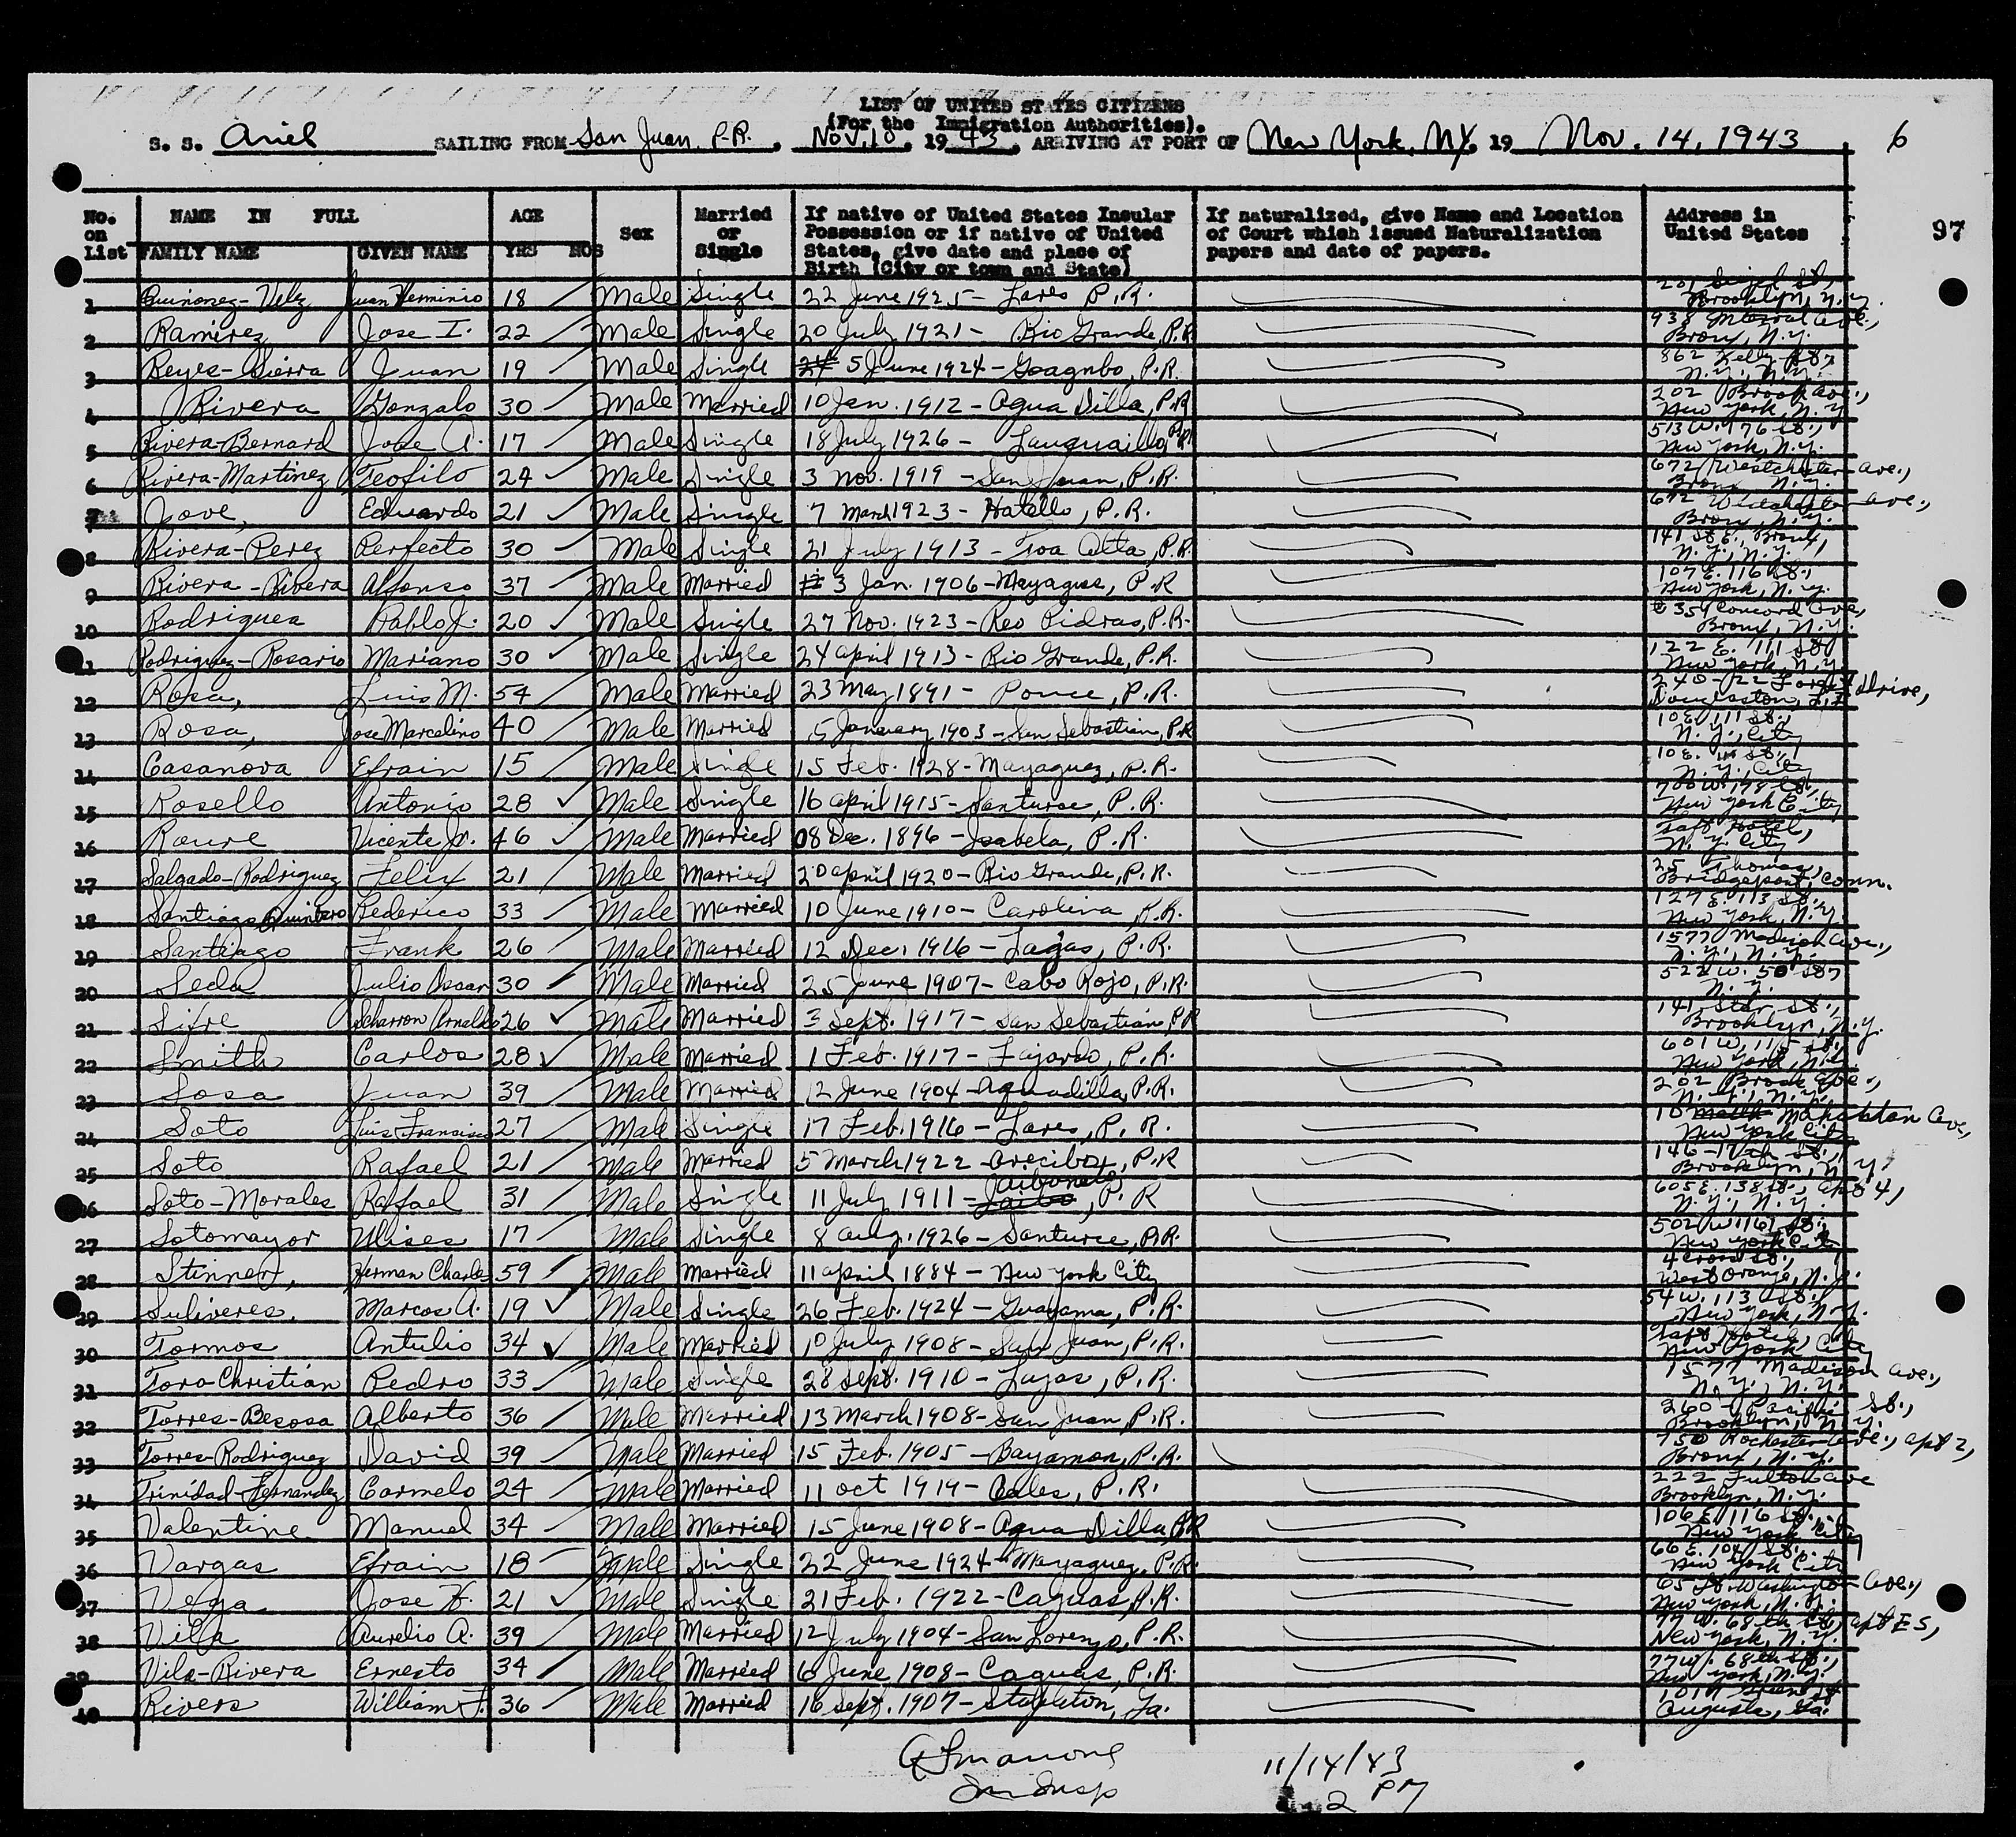 LIST OF UNITED STATES CITIZENS
(For the Immigration Authorities).
S. S. Ariel SAILING FROM San Juan P.R. , Nov. 10 , 19 43 , ARRIVING AT PORT OF New York, N.Y. 19 Nov. 14, 1943 6
97
No. on List NAME IN FULL FAMILY NAME GIVEN NAME AGE YRS MOS Sex Married or Single If native of United States Insular Possession or if native of United States, give date and place of Birth (City or town and State) If naturalized, give Name and Location of Court which issued Naturalization papers and date of papers. Address in United States
1 Quinonez-Velez Juan Herminio 18 Male Single 22 June 1925 - Lares P.R. Brooklyn, N.Y.
2 Ramirez Jose I. 22 Male Single 20 July 1921 - Rio Grande, P.R. 938 Ave., Bronx, N.Y.
3 Reyes-Sierra Juan 19 Male Single 5 June 1924 - P.R. 862 Kelly St., N.Y., N.Y.
4 Rivera Gonzalo 30 Male Married 10 Jan. 1912 - Agua Dilla, P.R. 202 Brook Ave., New York, N.Y.
5 Rivera-Bernard Jose A. 17 Male Single 18 July 1926 - P.R. 513 W. 176 St., New York, N.Y.
6 Rivera-Martinez Teofilo 24 Male Single 3 Nov. 1919 - San Juan, P.R. 672 Westchester Ave., Bronx N.Y.
7 Jove, Eduardo 21 Male Single 7 March 1923 - Hatello, P.R. 672 Westchester Ave., Bronx, N.Y.
8 Rivera-Perez Perfecto 30 Male Single 21 July 1913 - Toa Alta, P.R. 141 St. E., Bronx, N.Y., N.Y.
9 Rivera-Rivera Alfonso 37 Male Married 3 Jan. 1906 - Mayagues, P.R 107 E. 116 St., New York, N.Y.
10 Rodriguez Pablo J. 20 Male Single 27 Nov. 1923 - Reo Pidras, P.R. 359 Concord Ave, Bronx, N.Y.
11 Rodriguez-Rosario Mariano 30 Male Single 24 April 1913 - Rio Grande, P.R. 122 E. 111 St New York, N.Y.
12 Rosa, Luis M. 54 Male Married 23 May 1891 - Ponce, P.R. 240-22 Drive,
13 Rosa, Jose Marcelino 40 Male Married 5 January 1903 - San Sebastian, P.R 10 E. 111 St., N.Y., City
14 Casanova Efrain 15 Male Single 15 Feb. 1928 - Mayaguez, P.R. 10 E. 111 St., N.Y. City
15 Rosello Antonio 28 Male Single 16 April 1915 - Santurce, P.R. New York City
16 Vicente Jr. 46 Male Married 08 Dec. 1896 - Isabela, P.R. Taft Hotel, N.Y. City
17 Salgado-Rodriguez Felix 21 Male Married 20 April 1920 - Rio Grande, P.R. 25 Thomas, Bridgeport, Conn.
18 Santiago Quintero Federico 33 Male Married 10 June 1910 - Carolina, P.R. 127 E. 113 St., New York, N.Y.
19 Santiago Frank 26 Male Married 12 Dec. 1916 - Lajas, P.R. 1577 Madison Ave., N.Y., N.Y.
20 Seda Julio Oscar 30 Male Married 25 June 1907 - Cabo Rojo, P.R. 522 W. 50 St N.Y.
21 Sifre Scharron Arnaldo 26 Male Married 3 Sept. 1917 - San Sebastian P.R 141 Star St., Brooklyn, N.Y.
22 Smith Carlos 28 Male Married 1 Feb. 1917 - Fajardo, P.R. New York, N.Y.
23 Sosa Juan 39 Male Married 12 June 1904 - Aguadilla, P.R. 202 Brook Ave., N.Y., N.Y.
24 Soto Luis Francisco 27 Male Single 17 Feb. 1916 - Lares, P.R. 10 Manhattan Ave, New York City
25 Soto Rafael 21 Male Married 5 March 1922 - Arecibo, P.R 146-17th St., Brooklyn, N.Y.
26 Soto-Morales Raffael 31 Male Single 11 July 1911 - P.R 605 E. 138 St., Apt 4, N.Y., N.Y.
27 Sotomayor Ulises 17 Male Single 8 Aug. 1926 - Santurce, P.R. 502 W 161 St., New York City
28 Stinner, Herman Charles 59 Male Married 11 April 1884 - New York City 4 Cross St., West Orange, N.J.
29 Suliveres. Marcos A. 19 Male Single 26 Feb. 1924 - Guayama, P.R. 54 W. 113 St. New York, N.Y.
30 Tormos Antulio 34 Male Married 10 July 1908 - San Juan, P.R. Taft Hotel, New York City
31 Toro Christian Pedro 33 Male Single 28 Sept. 1910 - Lajas, P.R. 1577 Madison Ave., N.Y., N.Y.
32 Torres-Besosa Alberto 36 Male Married 13 March 1908 - San Juan, P.R. 260 - Pacific St., Brooklyn, N.Y.
33 Torres-Rodriguez David 39 Male Married 15 Feb. 1905 - Bayamon, P.R. 750 Rochester Ave., Apt 2, Bronx, N.Y.
34 Trinidad-Fernandez Carmelo 24 Male Married 11 Oct 1919 - Cales, P.R. 222 Fulton Ave Brooklyn, N.Y.
35 Valentine Manuel 34 Male Married 15 June 1908 - Agua Dilla, P.R 106 E. 116 St., New York City
36 Vargas Efrain 18 Male Single 22 June 1924 - Mayaguez, P.R. 66 E. 104 St. New York City
37 Vega Jose H. 21 Male Single 21 Feb. 1922 - Caguas, P.R. 65 Ft. Washington Ave., New York, N.Y.
38 Vila Aurelio A. 39 Male Married 12 July 1904 - San Lorenzo, P.R. 77 W. 68th St., Apt E5, New York, N.Y.
39 Vila-Rivera Ernesto 34 Male Married 6 June 1908 - Caguas, P.R. 77 W. 68th St., New York, N.Y.
40 Rivers William F. 36 Male Married 16 Sept. 1907 - Stapleton, Ga. Augusta, Ga.
11/14/43
2 PM